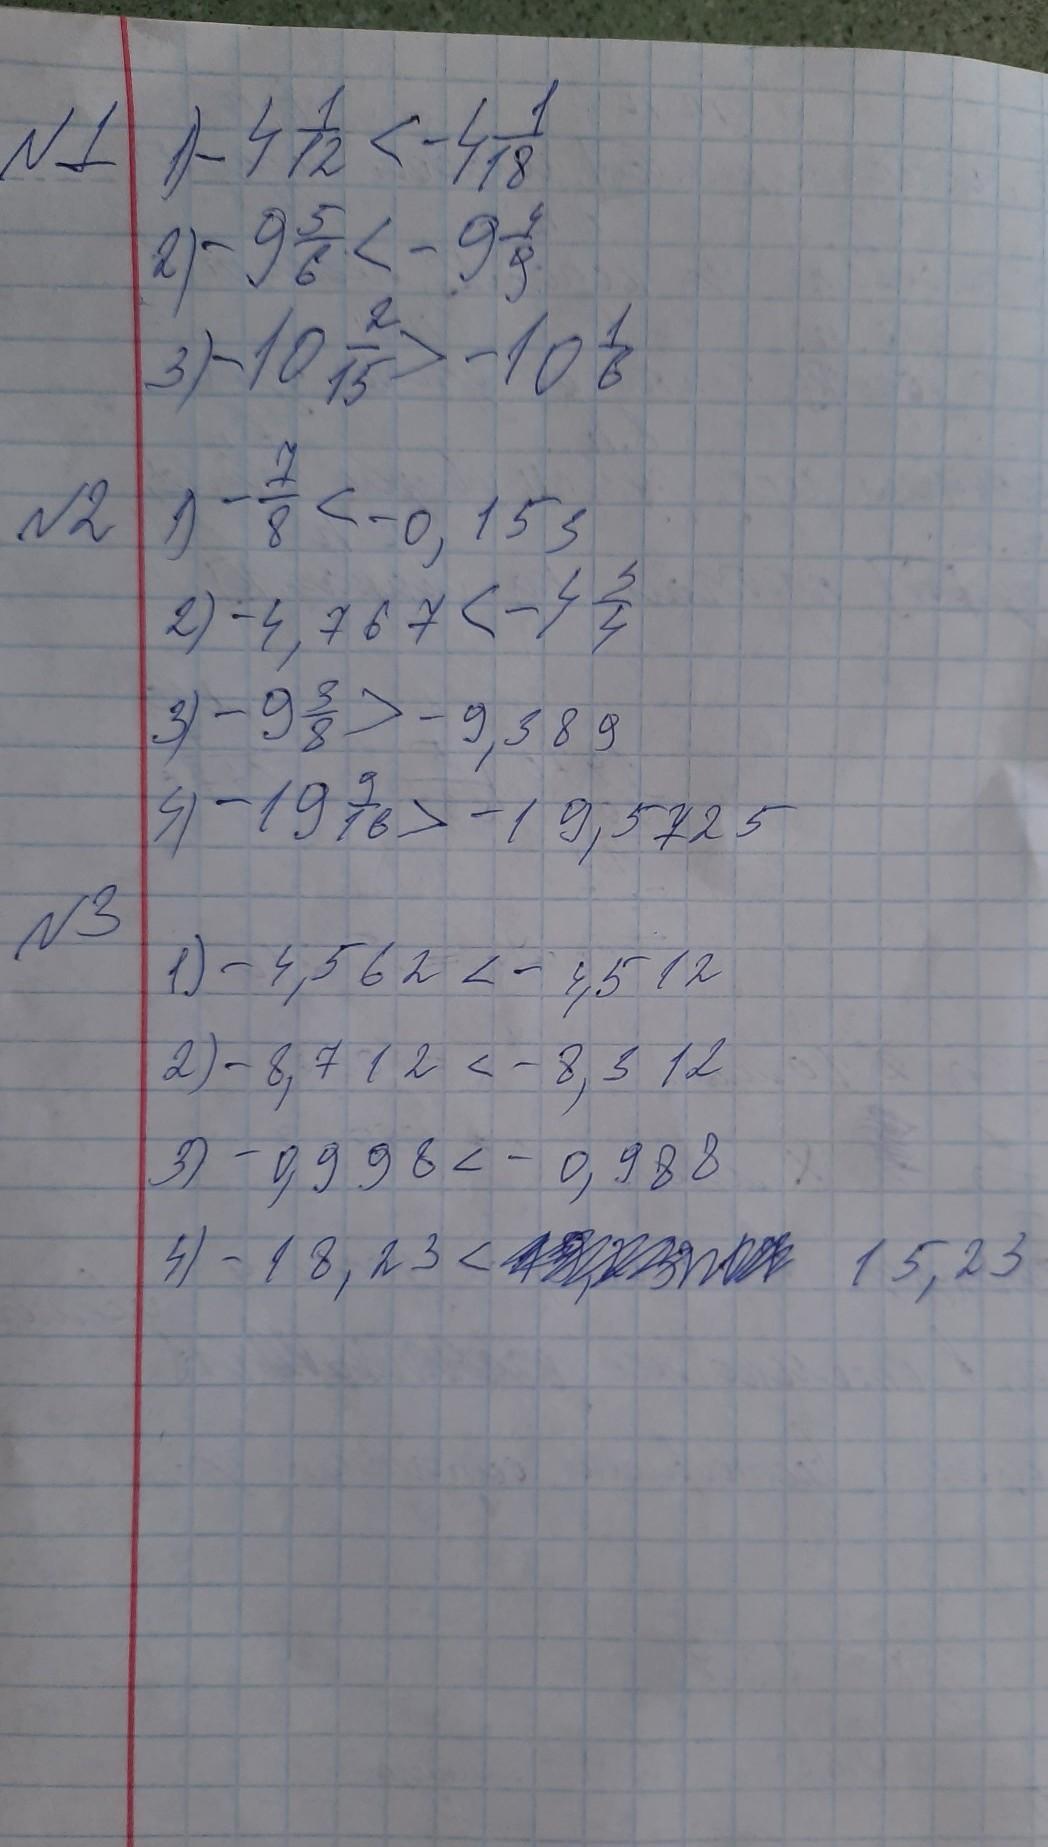 №1 1) -4 1/12 < -4 1/18
2) -9 5/6 < -9 4/9
3) -10 2/15 > -10 1/6
№2 1) -7/8 < -0,153
2) -4,767 < -4 3/4
3) -9 3/8 > -9,389
4) -19 9/16 > -19,5725
№3
1) -4,562 < -4,512
2) -8,712 < -8,312
3) -0,998 < -0,988
4) -18,23 < 15,23